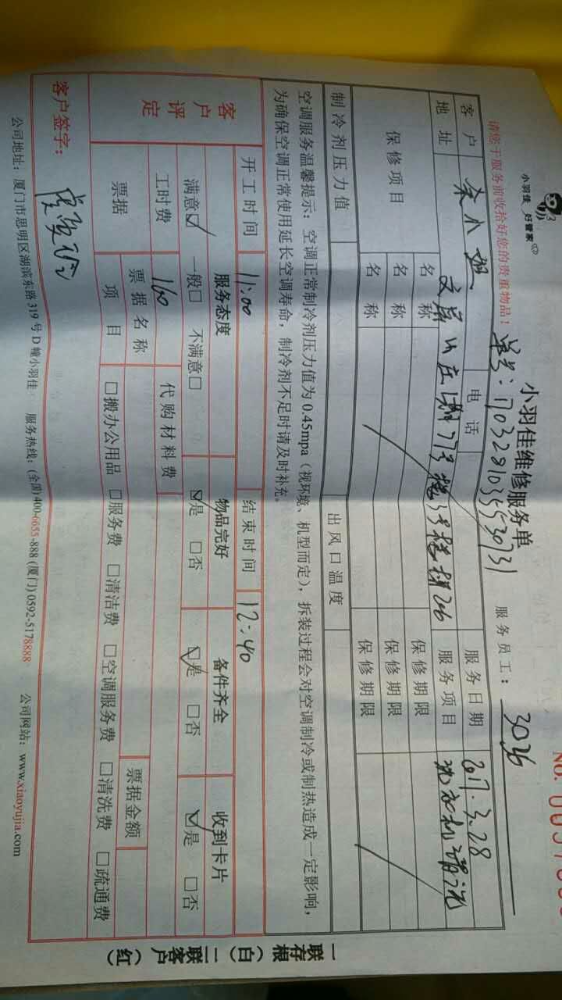 小羽佳 好管家
请您于服务前收拾好您的贵重物品!
小羽佳维修服务单
单号:170328103530731
服务员工: 3026
客户 小姐 电话 服务日期 2017.3.28
地址 服务项目 洗衣机清洗
保修项目 名称 保修期限
名称 保修期限
名称 保修期限
制冷剂压力值 出风口温度
空调服务温馨提示:空调正常制冷剂压力值为0.45mpa(视环境、机型而定),拆装过程会对空调制冷或制热造成一定影响,
为确保空调正常使用延长空调寿命,制冷剂不足时请及时补充。
开工时间 11:00 结束时间 12:40
客户评定 服务态度 物品完好 备件齐全 收到卡片
满意☑ 一般□ 不满意□ ☑是 □否 ☑是 □否 ☑是 □否
工时费 160 代购材料费
票据 票据名称 票据金额
项目 □搬办公用品 □服务费 □清洁费 □空调服务费 □清洗费 □疏通费
客户签字:
公司地址:厦门市思明区湖滨东路319号D幢小羽佳 服务热线:(全国)400-6055-888 (厦门)0592-5178888 公司网站:www.xiaoyujia.com
一联存根(白)二联客户(红)